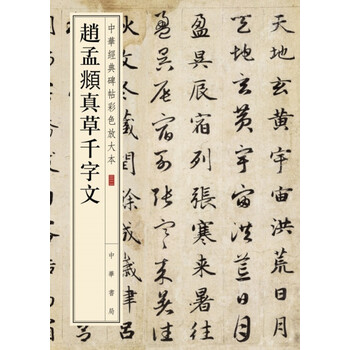 趙孟頫真草千字文
中華經典碑帖彩色放大本
中華書局
天地玄黃宇宙洪荒日月
天地玄黃宇宙洪荒日月
盈昃辰宿列張寒来暑往
盈昃辰宿列張寒来暑往
冬藏閏餘成歲律